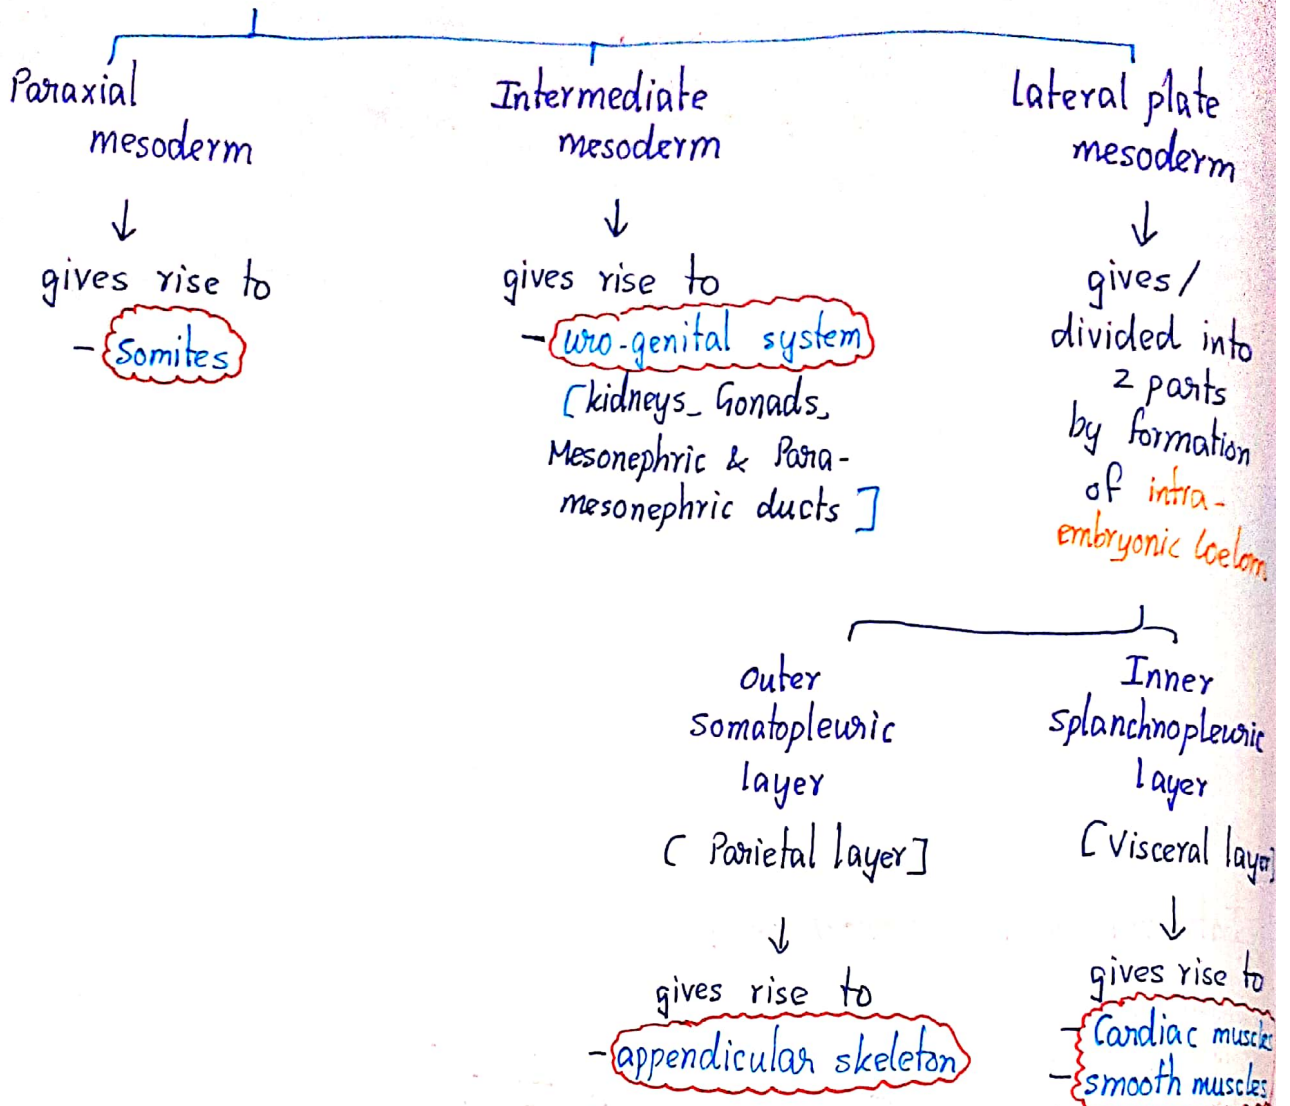 Paraxial
mesoderm
↓
gives rise to
- Somites
Intermediate
mesoderm
↓
gives rise to
- uro-genital system
[kidneys, Gonads,
Mesonephric & Para-
mesonephric ducts]
Lateral plate
mesoderm
↓
gives/
divided into
2 parts
by formation
of intra-
embryonic Coelom
Outer
Somatopleuric
layer
[Parietal layer]
↓
gives rise to
- appendicular skeleton
Inner
splanchnopleuric
layer
[Visceral layer]
↓
gives rise to
- Cardiac muscles
- smooth muscles